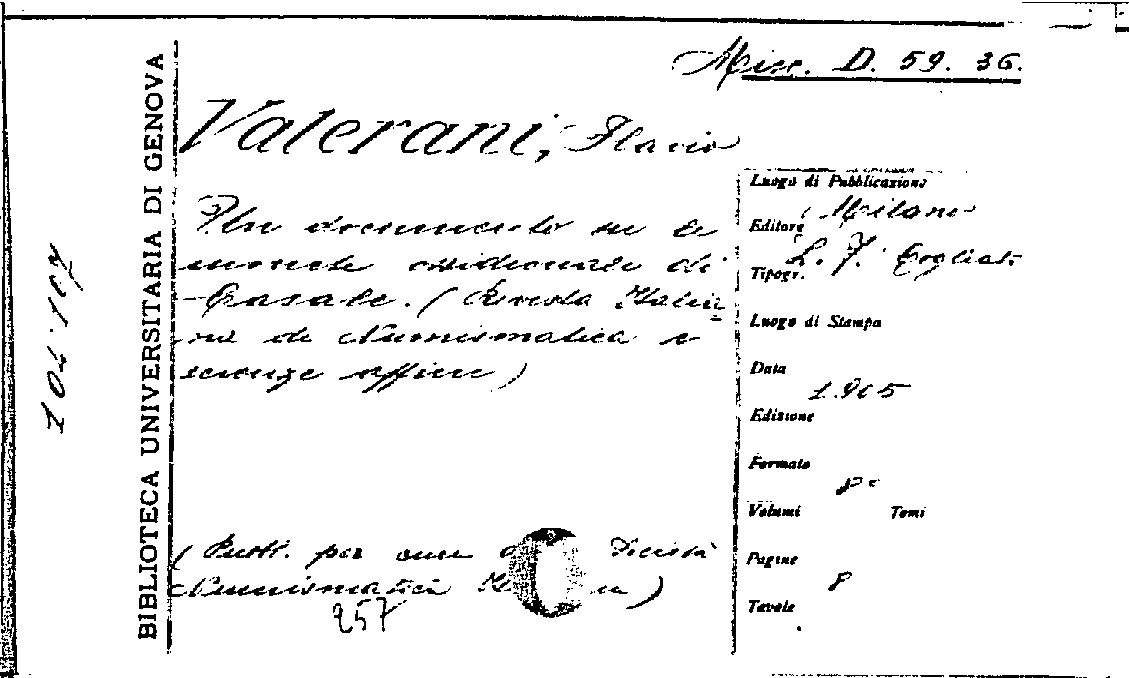 Misc. D. 59. 36.
BIBLIOTECA UNIVERSITARIA DI GENOVA
Valerani, Flavio
Un documento su le
monete ossidionali di
Casale. (Rivista Italia
na di Numismatica e
scienze affini)
(Pubb. per cura Società
Numismatica)
257
Luogo di Pubblicazione
Milano
Editore
L. F. Cogliati
Tipogr.
Luogo di Stampa
Data
1905
Edizione
Formato
8°
Volumi Tomi
Pagine
8
Tavole